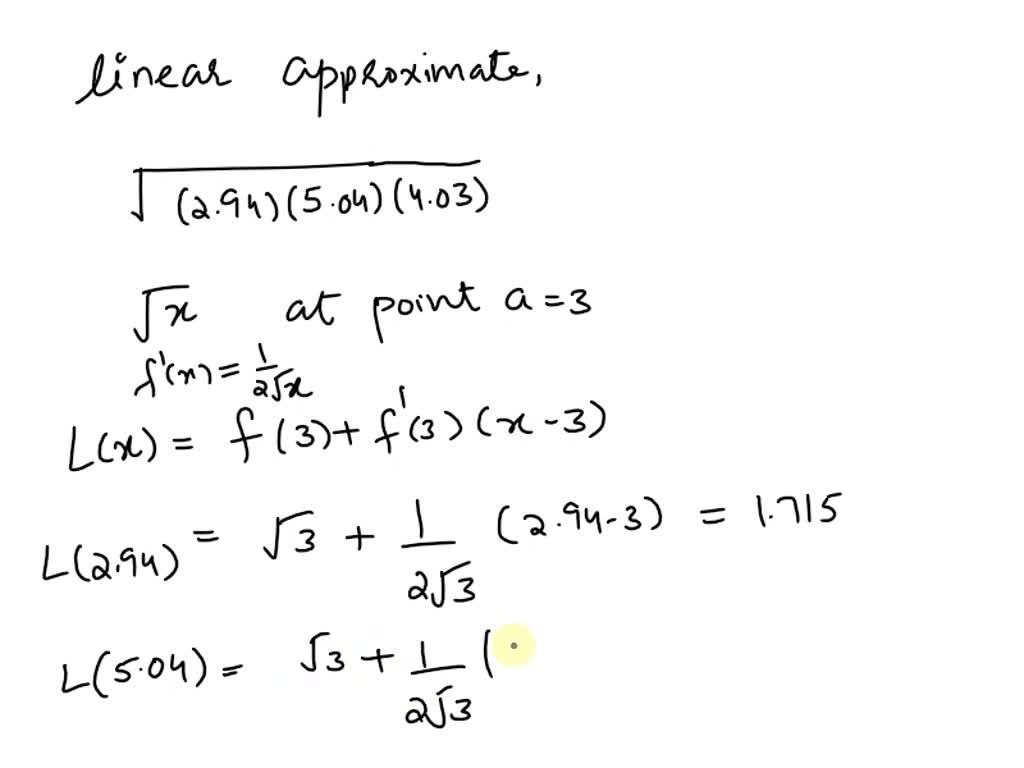 linear approximate,
√(2.94)(5.04)(4.03)
√x at point a=3
f'(x) = 1/2√x
L(x) = f(3) + f'(3) (x-3)
L(2.94) = √3 + 1/2√3 (2.94-3) = 1.715
L(5.04) = √3 + 1/2√3 (